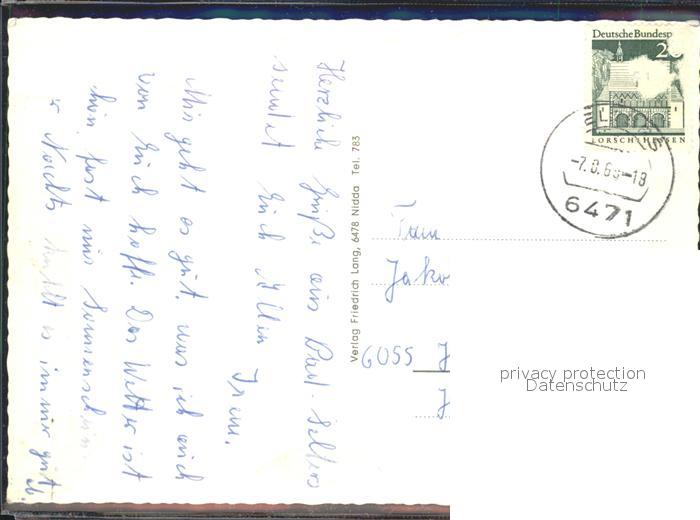 Herzliche Grüße aus Bad-Selters
sendet Euch Allen
Irene.
Mir geht es gut, was ich auch
von Euch hoffe. Das Wetter ist
hier fast nur Sonnenschein
u Nachts kühlt es immer gut
ab.
Verlag Friedrich Lang, 6478 Nidda Tel. 783
Deutsche Bundesp
LORSCH/HESSEN
6471
6055
privacy protection
Datenschutz